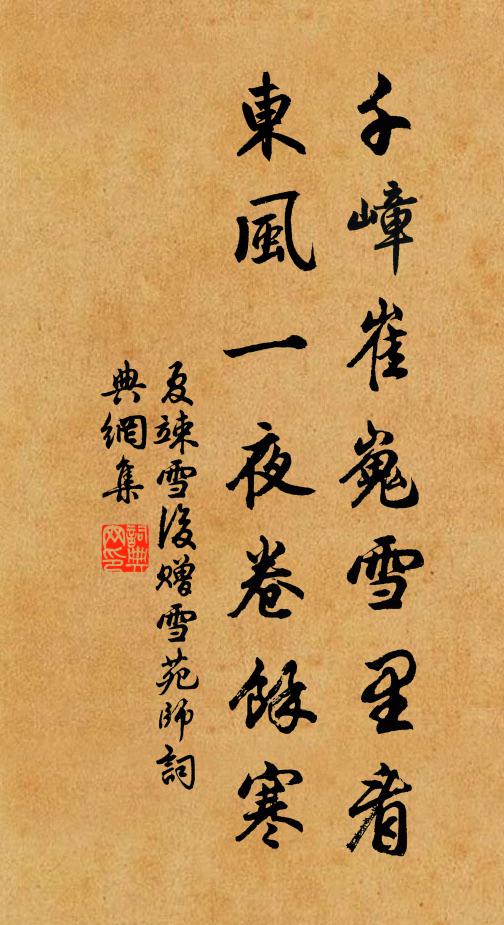 千嶂崔嵬雪里看
東風一夜卷餘寒
夏竦雪後贈雪苑師詞
典網集
詞典
网印